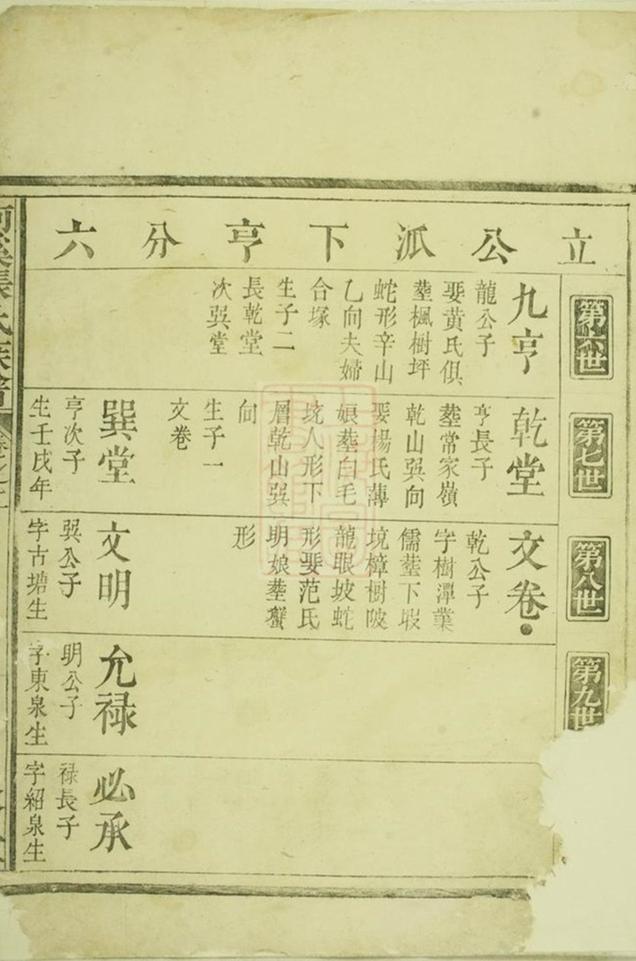 立公派下亨分六
第六世
第七世
第八世
第九世
九亨
龍公子
娶黃氏俱
塟楓樹坪
蛇形辛山
乙向夫婦
合塚
生子二
長乾堂
次巽堂
乾堂
亨長子
塟常家嶺
乾山巽向
娶楊氏薄
娘塟白毛
坑人形下
層乾山巽
向
生子一
文卷
巽堂
亨次子
生壬戌年
文卷
乾公子
字樹潭業
儒塟下塅
境樟樹陂
龍眼坡蛇
形娶范氏
明娘塟蟹
形
文明
巽公子
字古塘生
允禄
明公子
字東泉生
必承
禄長子
字紹泉生